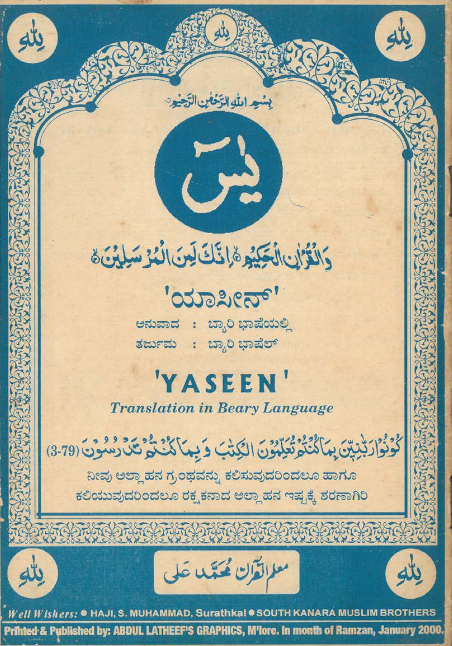 لله لله لله
بسم الله الرحمن الرحيم
يٰسٓ
وَالْقُرْاٰنِ الْحَكِيْمِ اِنَّكَ لَمِنَ الْمُرْسَلِيْنَ
'ಯಾಸೀನ್'
ಅನುವಾದ : ಬ್ಯಾರಿ ಭಾಷೆಯಲ್ಲಿ
ತರ್ಜುಮ : ಬ್ಯಾರಿ ಭಾಷೆಲ್
'YASEEN'
Translation in Beary Language
كُوْنُوْا رَبّٰنِيّٖنَ بِمَا كُنْتُمْ تُعَلِّمُوْنَ الْكِتٰبَ وَ بِمَا كُنْتُمْ تَدْرُسُوْنَ (3-79)
ನೀವು ಅಲ್ಲಾಹನ ಗ್ರಂಥವನ್ನು ಕಲಿಸುವುದರಿಂದಲೂ ಹಾಗೂ
ಕಲಿಯುವುದರಿಂದಲೂ ರಕ್ಷಕನಾದ ಅಲ್ಲಾಹನ ಇಷ್ಟಕ್ಕೆ ಶರಣಾಗಿರಿ
لله معلم القرآن مُحَمَّد عَلى لله
Well Wishers: ● HAJI, S. MUHAMMAD, Surathkal ● SOUTH KANARA MUSLIM BROTHERS
Printed & Published by: ABDUL LATHEEF'S GRAPHICS, M'lore. In month of Ramzan, January 2000.